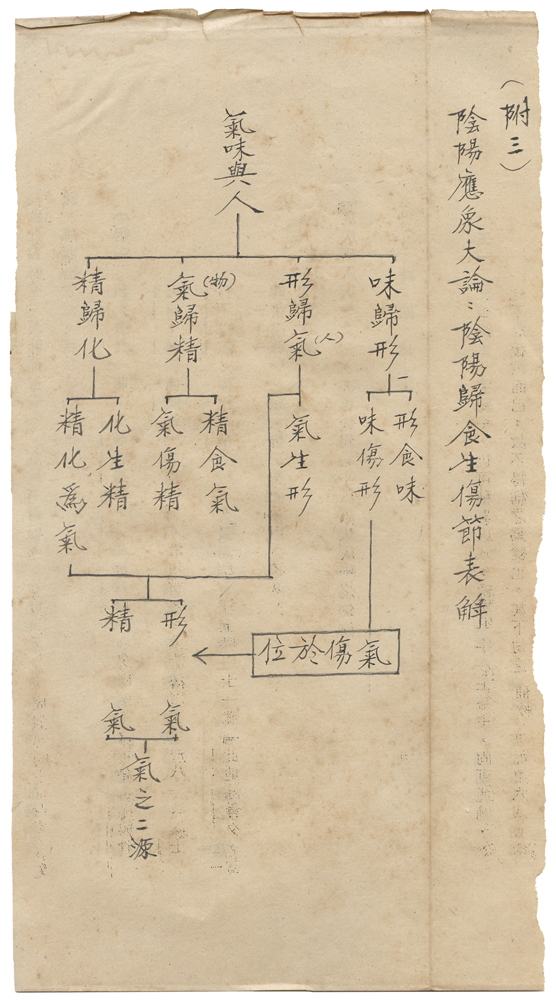 （附三）
陰陽應象大論：陰陽歸食生傷節表解
氣味與人
味歸形
形歸氣(人)
氣(物)歸精
精歸化
形食味
味傷形
氣生形
精食氣
氣傷精
化生精
精化為氣
形
精
位於傷氣
氣
氣
氣之二源